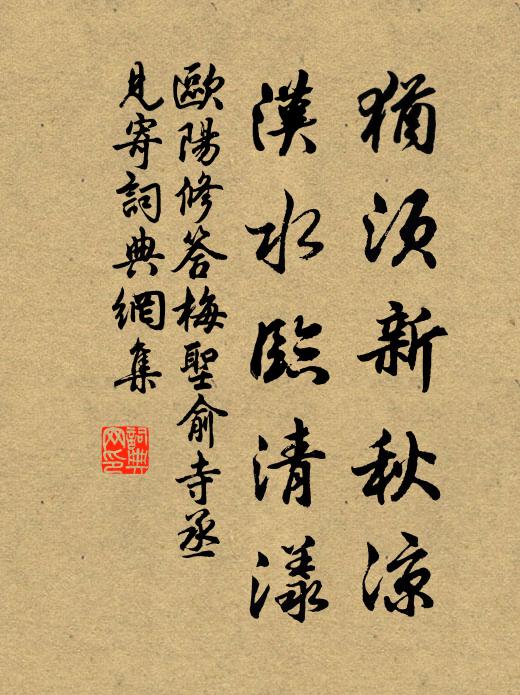 猶須新秋涼
漢水臨清漾
歐陽修答梅聖俞寺丞
見寄詞典網集
詞典網印